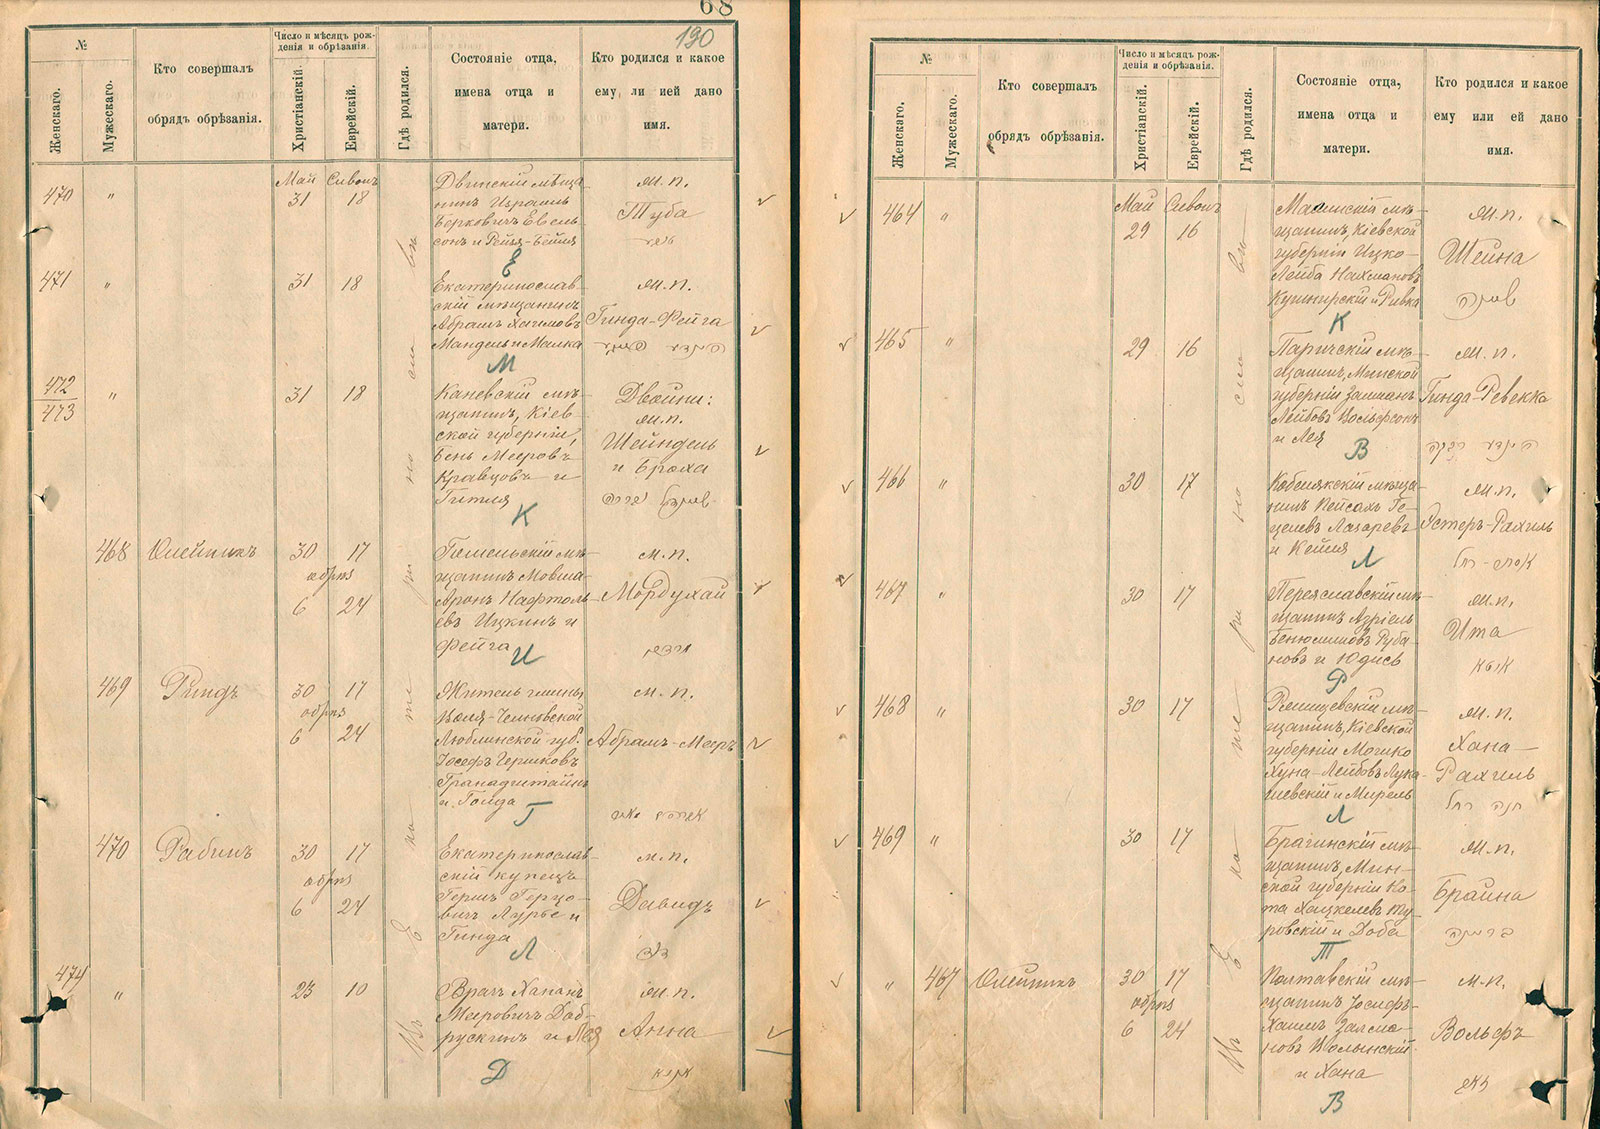 68
190
№
Женскаго.
Мужескаго.
Кто совершалъ
обрядъ обрѣзанія.
Число и мѣсяцъ рож-
денія и обрѣзанія.
Христіанскій.
Еврейскій.
Гдѣ родился.
Состояніе отца,
имена отца и
матери.
Кто родился и какое
ему ли ией дано
имя.
Въ Екатеринославѣ
470 " Май 31 Сивонъ 18
Двинскій мѣща-
нинъ Израиль
Берковичъ Евель-
сонъ и Рейза-Бейля
Е
м.п.
Туба
471 " 31 18
Екатеринослав-
скій мѣщанинъ
Абрамъ Хаимовъ
Мандель и Малка
М
м.п.
Гинда-Фейга
472
473
" 31 18
Каневскій мѣ-
щанинъ, Кіев-
ской губерніи,
Бень Мееровъ
Кравцовъ и
Гитля
К
Двойни:
м.п.
Шейндель
и Броха
468 Олейникъ 30 17
обрѣз
6 24
Гомельскій мѣ-
щанинъ Мовша-
Аронъ Нафтоль-
евъ Ицкинъ и
Фейга
И
м.п.
Мордухай
469 Риндъ 30 17
обрѣз
6 24
Житель гмины
Воля-
Люблинской губ.
Іосефъ Гершковъ
и Голда
Г
м.п.
Абрамъ-Мееръ
470 Рабинъ 30 17
обрѣз
6 24
Екатеринослав-
скій купецъ
Гершъ Герцо-
вичъ Лурье и
Гинда
Л
м.п.
Давидъ
דוד
474 " 23 10
Врачъ Хананъ
Мееровичъ Доб-
рускинъ и Лея
Д
м.п.
Анна
№
Женскаго.
Мужескаго.
Кто совершалъ
обрядъ обрѣзанія.
Число и мѣсяцъ рож-
денія и обрѣзанія.
Христіанскій.
Еврейскій.
Гдѣ родился.
Состояніе отца,
имена отца и
матери.
Кто родился и какое
ему или ей дано
имя.
Въ Екатеринославѣ
464 " Май 29 Сивонъ 16
Малинскій мѣ-
щанинъ, Кіевской
губерніи Ицко-
Лейба Нахмановъ
Кушнирскій и Ривка
К
м.п.
Шейна
465 " 29 16
Паричскій мѣ-
щанинъ, Минской
губерніи Залманъ
Лейбовъ Вольфсонъ
и Лея
В
м.п.
Гинда-Ревекка
466 " 30 17
Кобелякскій мѣща-
нинъ Пейсахъ Ге-
целевъ Лазаревъ
и Кейля
Л
м.п.
Эстеръ-Рахиль
אסתר - רחל
467 " 30 17
Переяславскій мѣ-
щанинъ Азріель
Бенюминовъ Руба-
новъ и Юдисъ
Р
м.п.
Ита
468 " 30 17
Ржищевскій мѣ-
щанинъ, Кіевской
губерніи Мошко
Хуна-Лейбовъ Лука-
шевскій и Мирель
Л
м.п.
Хана-
Рахиль
חנה רחל
469 " 30 17
Брагинскій мѣ-
щанинъ, Мин-
ской губерніи Ко-
па Хацкелевъ Ту-
ровскій и Доба
Т
м.п.
Брайна
" 467 Олейникъ 30 17
обрѣз
6 24
Полтавскій мѣ-
щанинъ Іосифъ-
Хаимъ Залма-
новъ Волынскій
и Хана
В
м.п.
Вольфъ